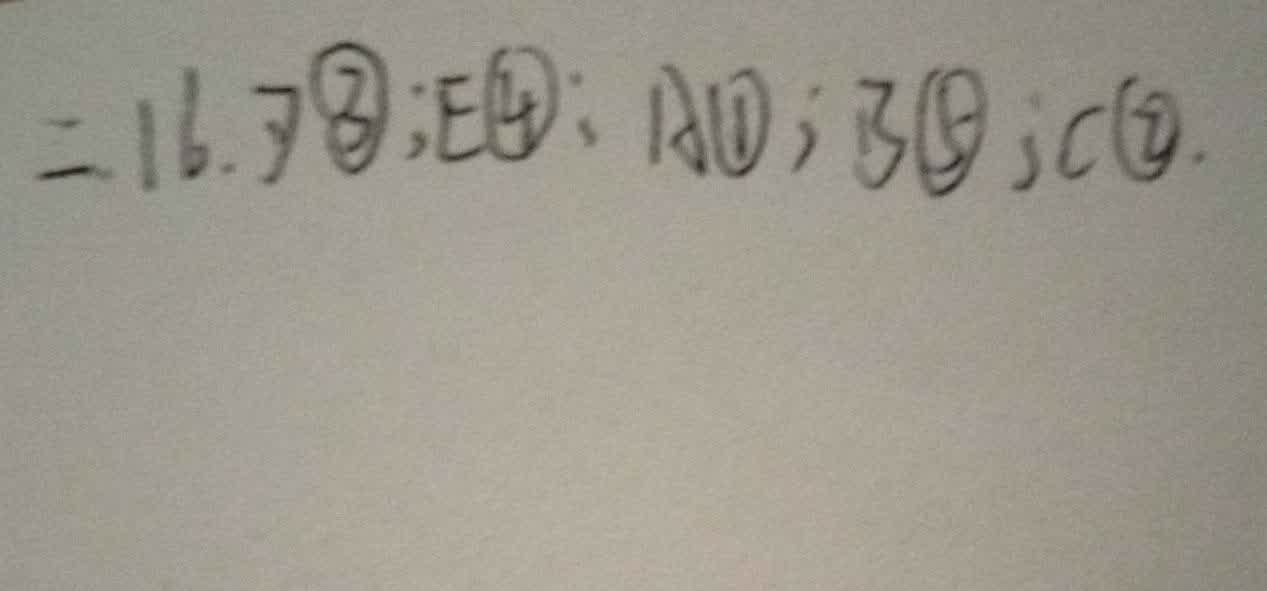 二.16.D③;E④;A①;B⑤;C②.